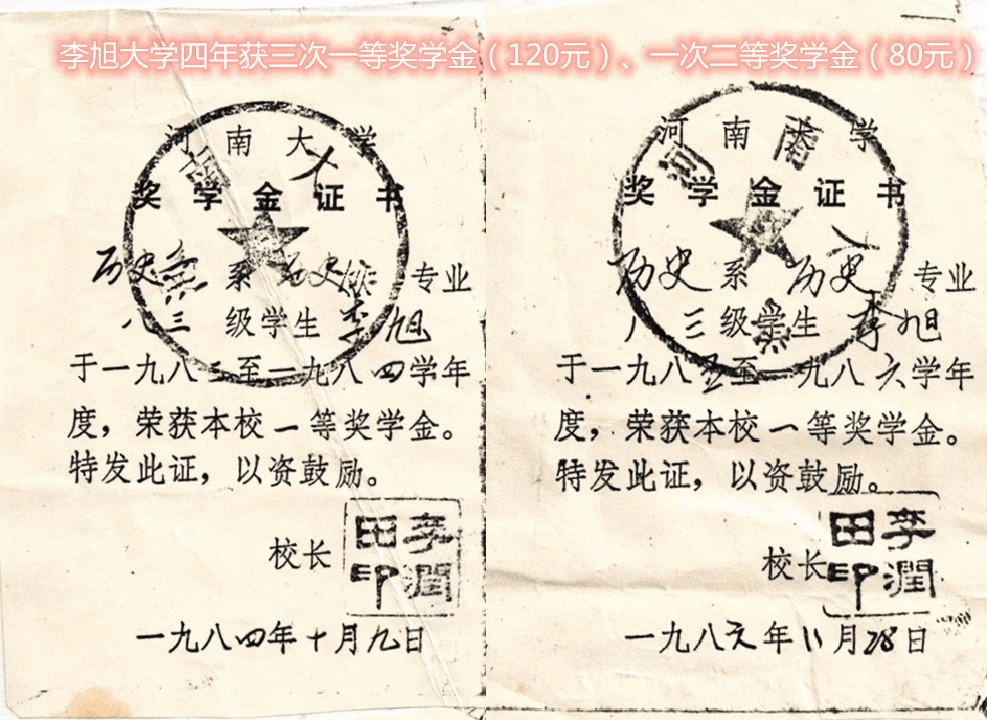 李旭大学四年获三次一等奖学金（120元）、一次二等奖学金（80元）
河南大学
奖学金证书
历史系 历史 专业
八三级学生李旭
于一九八三至一九八四学年
度，荣获本校一等奖学金。
特发此证，以资鼓励。
校长
李潤田印
一九八四年十月九日
河南大学
奖学金证书
历史系 历史 专业
八三级学生 李旭
于一九八五至一九八六学年
度，荣获本校一等奖学金。
特发此证，以资鼓励。
校长
李潤田印
一九八六年11月28日